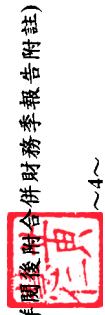 閱後附合併財務季報告附註)
~4~